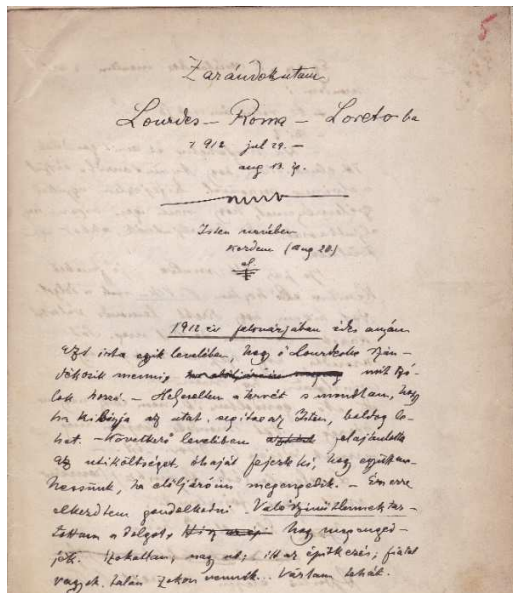 5
Zarándokutam
Lourdes – Roma – Loretoba
1912 jul 29. –
aug 13. ig.
Isten nevében
kezdem (aug 20.)
el.
1912 év februárjában édes anyám
azt irta egik levelében, hogy ő Lourdesba szán-
dékozik menni, mit szó-
lok hozzá. – Helyeseltem a tervét s mondtam, hogy
ha kibirja az utat, segitse az Isten, boldog le-
het. – Következő levelében felajánlotta
az utiköltséget, óhaját fejezte ki, hogy együtt me-
hessünk, ha elöljáróim megengedik. – Én erre
elkezdtem gondolkodni. Valószinütlennek tar-
tottam a dolgot, hogy megenged-
jék. Szokatlan, nagy ut; itt az épitkezés; fiatal
vagyok, talán zokon vennék... Vártam tehát.